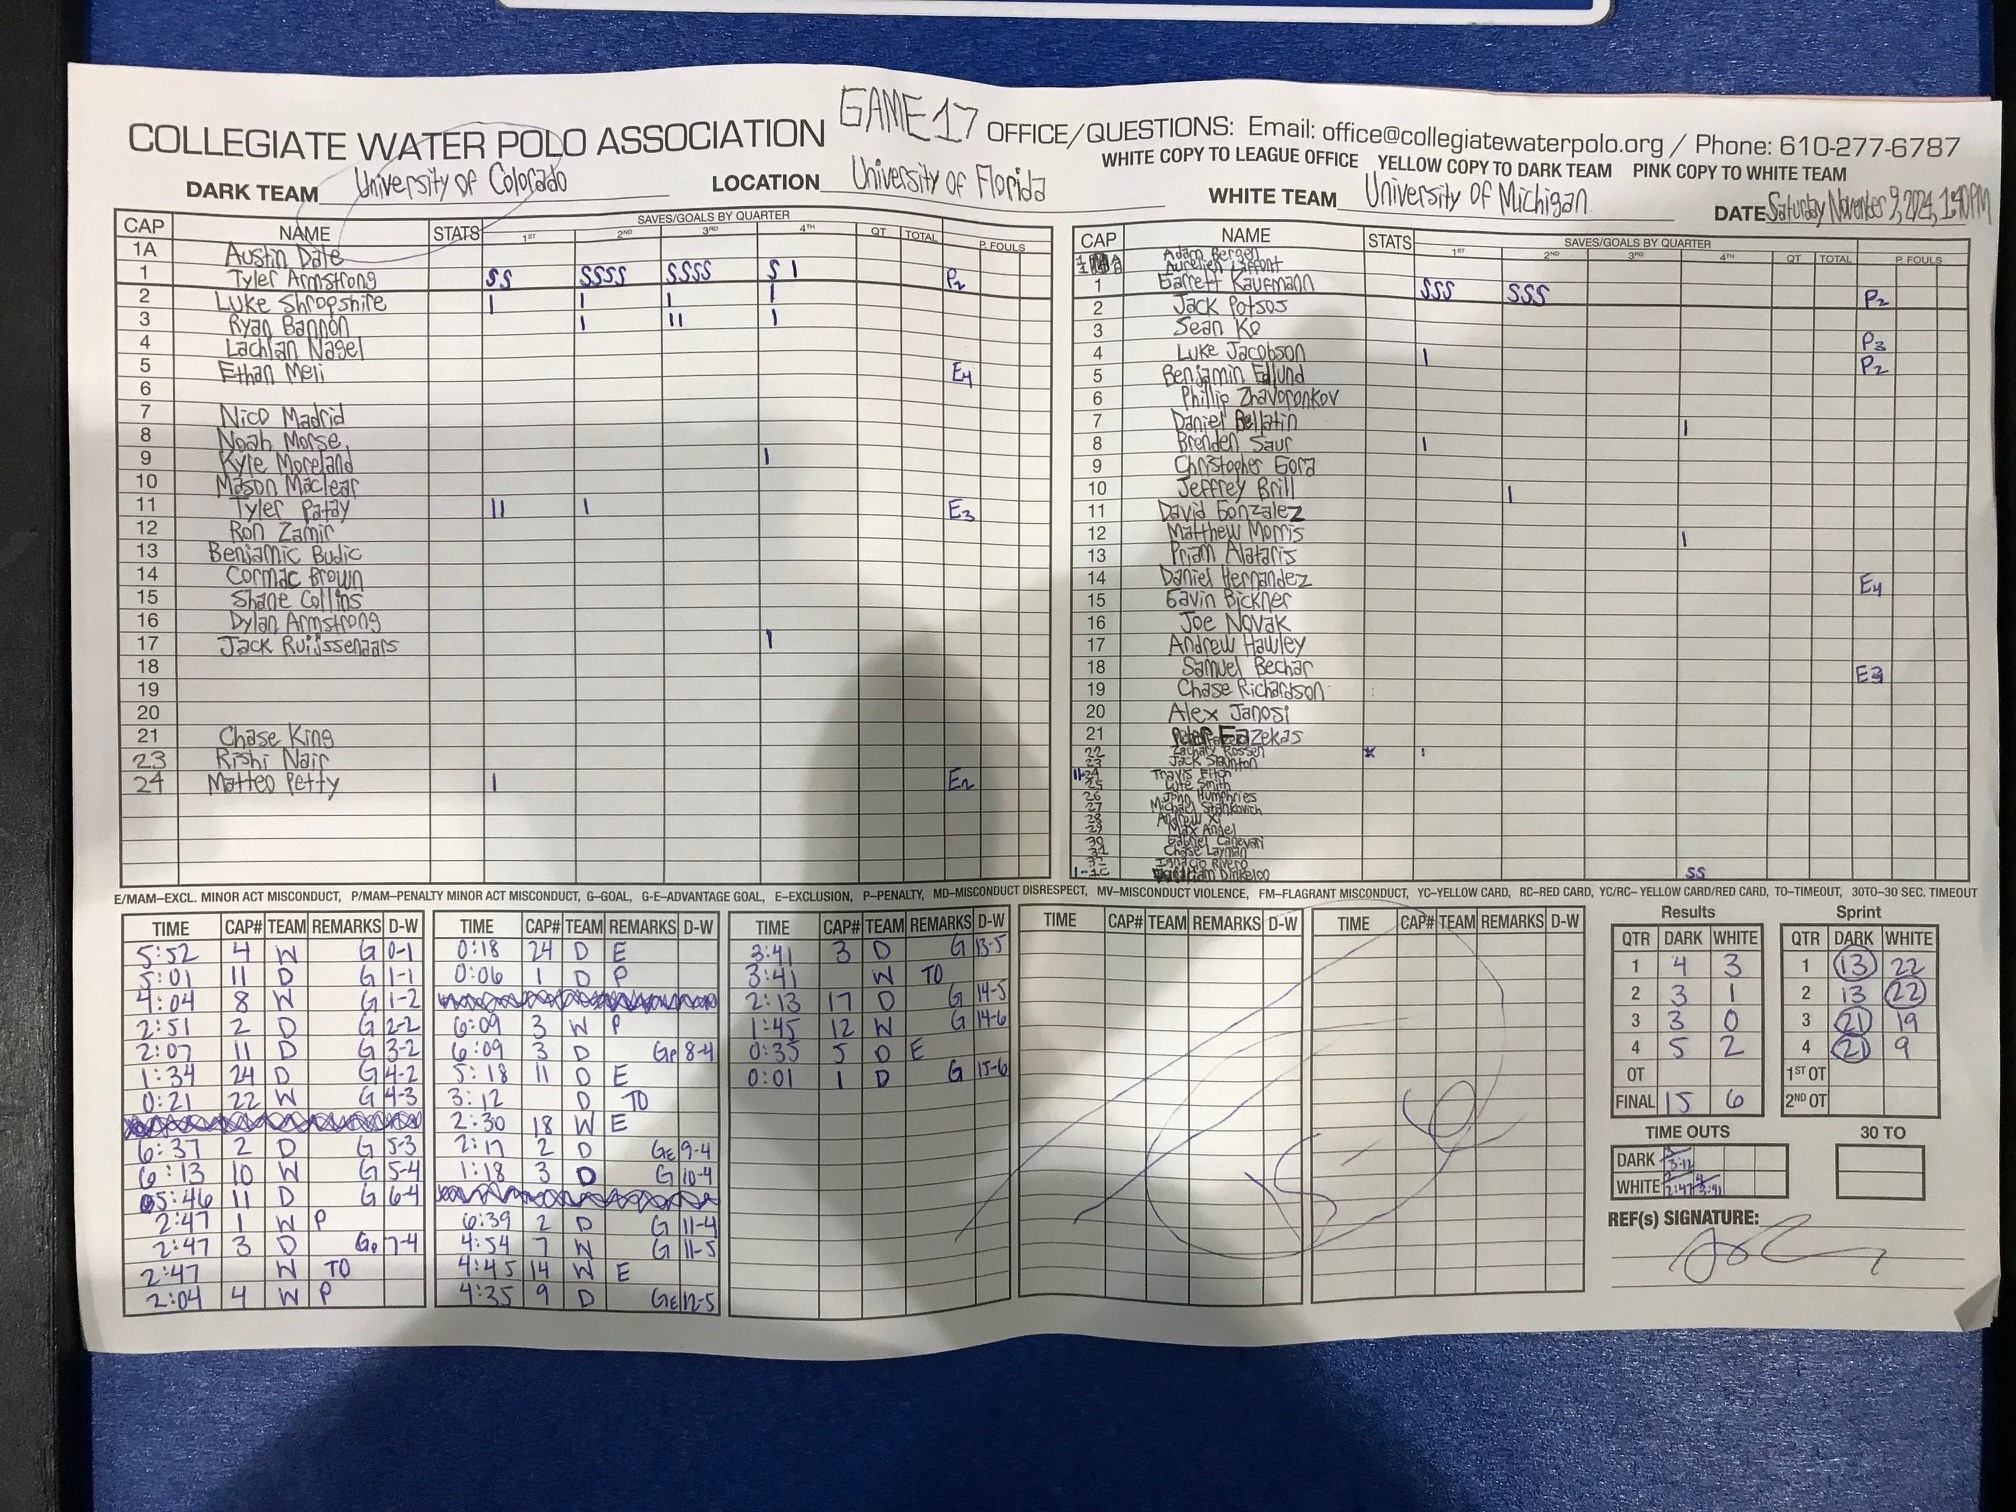 GAME 17
COLLEGIATE WATER POLO ASSOCIATION OFFICE/QUESTIONS: Email: office@collegiatewaterpolo.org / Phone: 610-277-6787
WHITE COPY TO LEAGUE OFFICE YELLOW COPY TO DARK TEAM PINK COPY TO WHITE TEAM
DARK TEAM University of Colorado LOCATION University of Florida WHITE TEAM University of Michigan DATE Saturday November 9, 2024, 1:40PM
CAP NAME STATS SAVES/GOALS BY QUARTER P. FOULS
1ST 2ND 3RD 4TH QT TOTAL
1A Austin Date
1 Tyler Armstrong SS SSSS SSSS S I P2
2 Luke Shropshire I I I I
3 Ryan Bannon I II I
4 Lachlan Nagel
5 Ethan Meli E4
6
7 Nico Madrid
8 Noah Morse
9 Kyle Moreland I
10 Mason Maclear
11 Tyler Patay II I E3
12 Ron Zamir
13 Benjamic Budic
14 Cormac Brown
15 Shane Collins
16 Dylan Armstrong
17 Jack Ruijssenaars I
18
19
20
21 Chase King
23 Rishi Nair
24 Matteo Petty I E2
CAP NAME STATS SAVES/GOALS BY QUARTER P. FOULS
1ST 2ND 3RD 4TH QT TOTAL
Adam Bergen
Aurelien Laffont
1 Garrett Kaufmann SSS SSS P2
2 Jack Potsos
3 Sean Ko P3
4 Luke Jacobson I P2
5 Benjamin Edlund
6 Phillip Zhavoronkov
7 Daniel Bellatin I
8 Brenden Saur I
9 Christopher Gora
10 Jeffrey Brill I
11 David Gonzalez
12 Matthew Morris I
13 Priam Alataris
14 Daniel Hernandez E4
15 Gavin Bickner
16 Joe Novak
17 Andrew Hawley
18 Samuel Bechar E3
19 Chase Richardson
20 Alex Janosi
21 Fazekas
22 Zachary Rossen * I
23 Jack Staunton
24 Travis Fitch
25 Luke Smith
26 John Humphries
27 Michael Stankovich
28 Andrew Xi
29 Max Angel
30 Gabriel Canevari
31 Chase Layman
32 Ignacio Rivero
1-1C Dinkeloo SS
E/MAM–EXCL. MINOR ACT MISCONDUCT, P/MAM–PENALTY MINOR ACT MISCONDUCT, G–GOAL, G-E–ADVANTAGE GOAL, E–EXCLUSION, P–PENALTY, MD–MISCONDUCT DISRESPECT, MV–MISCONDUCT VIOLENCE, FM–FLAGRANT MISCONDUCT, YC–YELLOW CARD, RC–RED CARD, YC/RC–YELLOW CARD/RED CARD, TO–TIMEOUT, 30TO–30 SEC. TIMEOUT
TIME CAP# TEAM REMARKS D-W
5:52 4 W G 0-1
5:01 11 D G 1-1
4:04 8 W G 1-2
2:51 2 D G 2-2
2:07 11 D G 3-2
1:34 24 D G 4-2
0:21 22 W G 4-3
6:37 2 D G 5-3
6:13 10 W G 5-4
5:46 11 D G 6-4
2:47 1 W P
2:47 3 D Gp 7-4
2:47 W TO
2:04 4 W P
TIME CAP# TEAM REMARKS D-W
0:18 24 D E
0:06 1 D P
6:09 3 W P
6:09 3 D Gp 8-4
5:18 11 D E
3:12 D TO
2:30 18 W E
2:17 2 D GE 9-4
1:18 3 D G 10-4
6:39 2 D G 11-4
4:54 7 W G 11-5
4:45 14 W E
4:35 9 D GE 12-5
TIME CAP# TEAM REMARKS D-W
3:41 3 D G 13-5
3:41 W TO
2:13 17 D G 14-5
1:45 12 W G 14-6
0:35 5 D E
0:01 1 D G 15-6
TIME CAP# TEAM REMARKS D-W
TIME CAP# TEAM REMARKS D-W
Results
QTR DARK WHITE
1 4 3
2 3 1
3 3 0
4 5 2
OT
FINAL 15 6
Sprint
QTR DARK WHITE
1 13 22
2 13 22
3 21 19
4 21 9
1ST OT
2ND OT
TIME OUTS
DARK 3 3:12
WHITE 2 2:47 4 3:41
30 TO
REF(s) SIGNATURE: